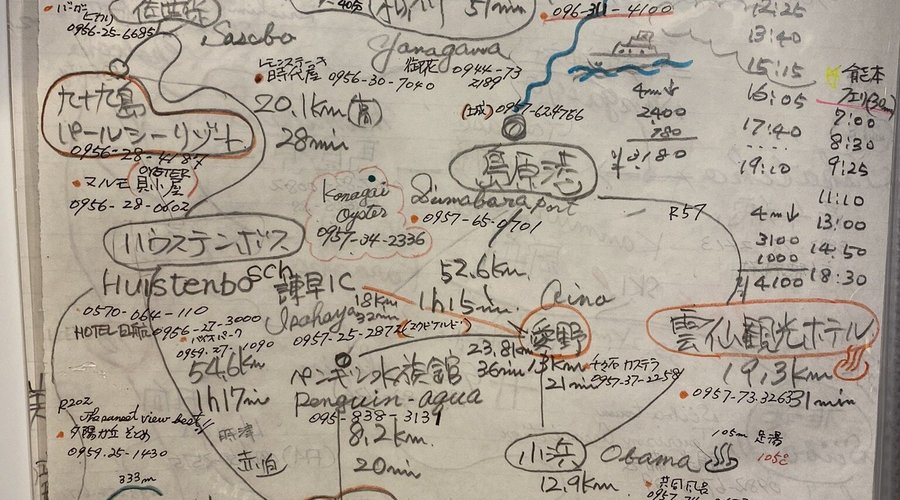 佐世保
0956-25-6685
Sasebo
柳川
51min
Yanagawa
御花 0944-73
2189
096-311-4100
12:25
13:40
15:15
16:05
17:40
19:10
熊本
フェリー(30m)
7:00
8:30
9:25
11:10
13:00
14:50
18:30
時代屋 0956-30-7040
九十九島
パールシーリゾート
0956-28-4187
20.1km(高)
28min
(城) 0957-62-4766
4m↓
2400
780
¥3180
OYSTER
マルモ 貝小屋
0956-28-0602
島原港
Simabaraport
0957-65-0701
R57
Konagai
Oyster
0957-34-2336
4m↓
3100
1000
¥4100
ハウステンボス
Huistenbosch
0570-064-110
HOTEL日航 0956-27-3000
0959-27-1090
諫早IC
Isahaya
18km
32min
0957-25-2972
52.6km.
1h15min.
Aino
愛野
23.8km
36min
13km
21min
千々石 カステラ
0957-37-2258
雲仙観光ホテル
19.3km
0957-73-3263
31min
54.6km
1h17min
ペンギン水族館
Penguin-aqua
095-838-3139
8.2km.
20min
R202
The sunset view best!!
夕陽が丘そとめ
0959-25-1430
333m
小浜
Obama
12.9km
105m 足湯
105℃
共同風呂